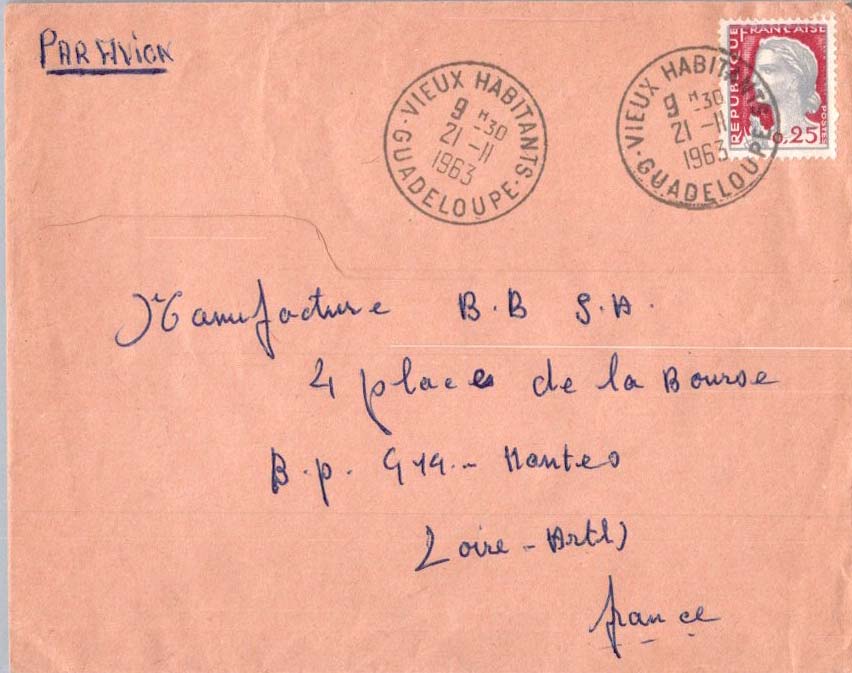 PAR AVION
VIEUX HABITANTS
9 H 30
21 -11
1963
GUADELOUPE
VIEUX HABITANTS
9 H 30
21 -11
1963
GUADELOUPE
REPUBLIQUE FRANÇAISE
0,25
POSTES
Manufacture B.B S.A.
4 places de la Bourse
B.p. Nantes
Loire -
france